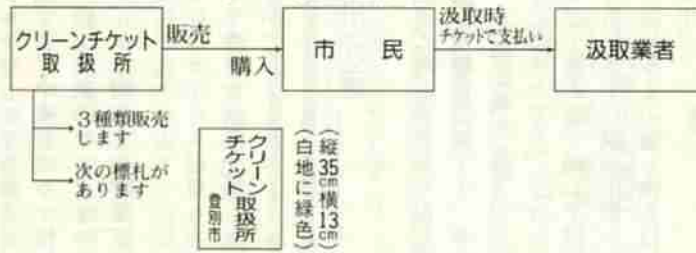 クリーンチケット
取扱所
販売
購入
市民
汲取時
チケットで支払い
汲取業者
3種類販売
します
次の標札が
あります
クリーン
チケット
取扱所
登別市
(縦35cm横13cm)
(白地に緑色)